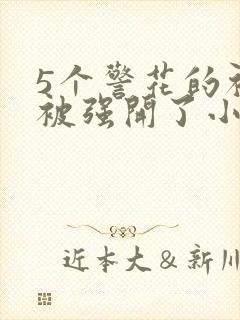 5个警花的
被强開了小
近本大＆新川